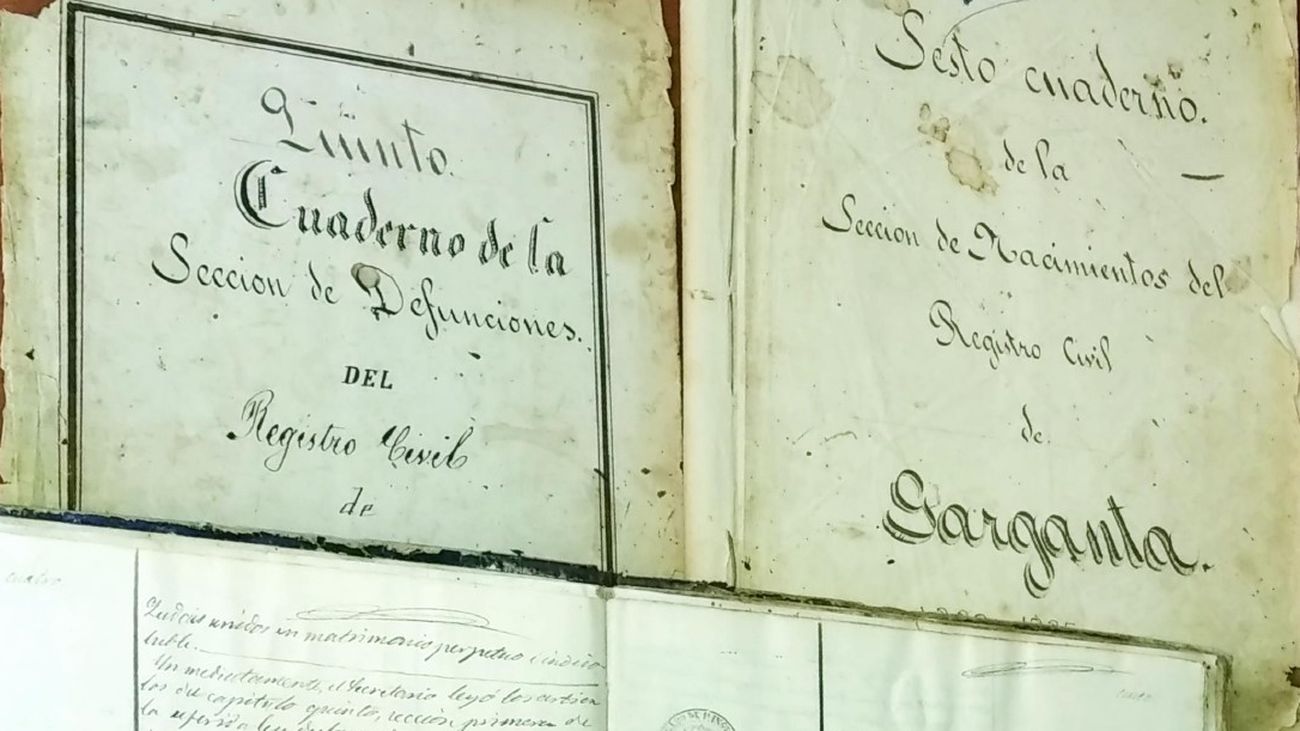 Quinto
Cuaderno de la
Seccion de Defunciones.
DEL
Registro Civil
de
Sesto cuaderno.
de la
Seccion de Nacimientos del
Registro Civil
de
Garganta.
cuatro
Quedais unidos en matrimonio perpetuo é indiso
luble.
el Secretario leyó los articu
los du capitulo quinto, seccion primera de
la referida ley